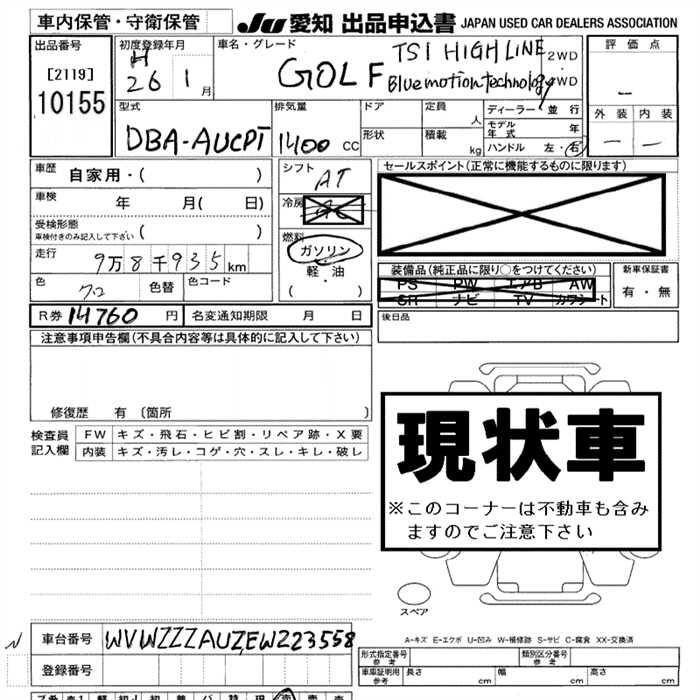 車内保管・守衛保管
JU 愛知 出品申込書 JAPAN USED CAR DEALERS ASSOCIATION
出品番号
[2119]
10155
初度登録年月
H 26 1月
車名・グレード
GOLF TSI HIGHLINE
Bluemotion technology
2WD
4WD
評価点
－
外装 内装
－ －
型式
DBA-AUCPT
排気量
1400 CC
ドア
形状
定員
人
積載
kg
ディーラー・並行
モデル年式 年
ハンドル 左・右
車歴 自家用・( )
車検 年 月( 日)
受検形態
車検付きのみ記入して下さい ( )
走行 9万8千935km
色 色替 色コード
シフト AT
冷房
燃料
ガソリン
軽・油
( ・ )
セールスポイント(正常に機能するものに限ります)
装備品(純正品に限り○をつけてください)
PS PW エアB AW
SR ナビ TV カワシート
新車保証書
有・無
R券 14760 円 名変通知期限 月 日
後日品
注意事項申告欄(不具合内容等は具体的に記入して下さい)
修復歴 有 〔箇所 〕
検査員記入欄
FW キズ・飛石・ヒビ割・リペア跡・X要
内装 キズ・汚レ・コゲ・穴・スレ・キレ・破レ
現状車
※このコーナーは不動車も含み
ますのでご注意下さい
スペア
A-キズ E-エクボ U-凹み W-補修跡 S-サビ C-腐食 XX-交換済
車台番号 WVWZZZAUZEW223558
登録番号
形式指定番号 参考
類別区分番号 参考
車庫証明用 参考 長さ cm 幅 cm 高さ cm